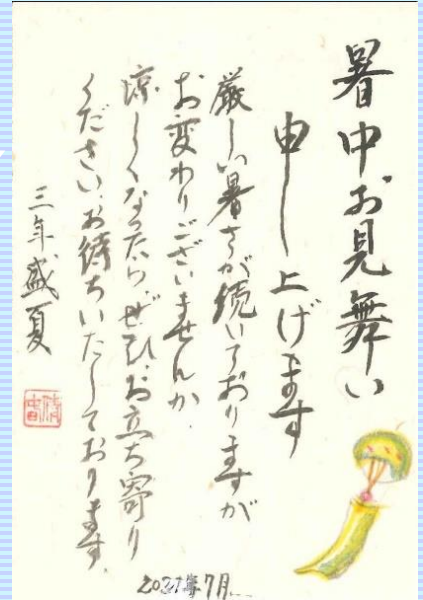 暑中お見舞い
申し上げます
厳しい暑さが続いておりますが
お変わりございませんか、
涼しくなったら、ぜひ、お立ち寄り
ください、お待ちいたしております、
三年盛夏
2021年7月